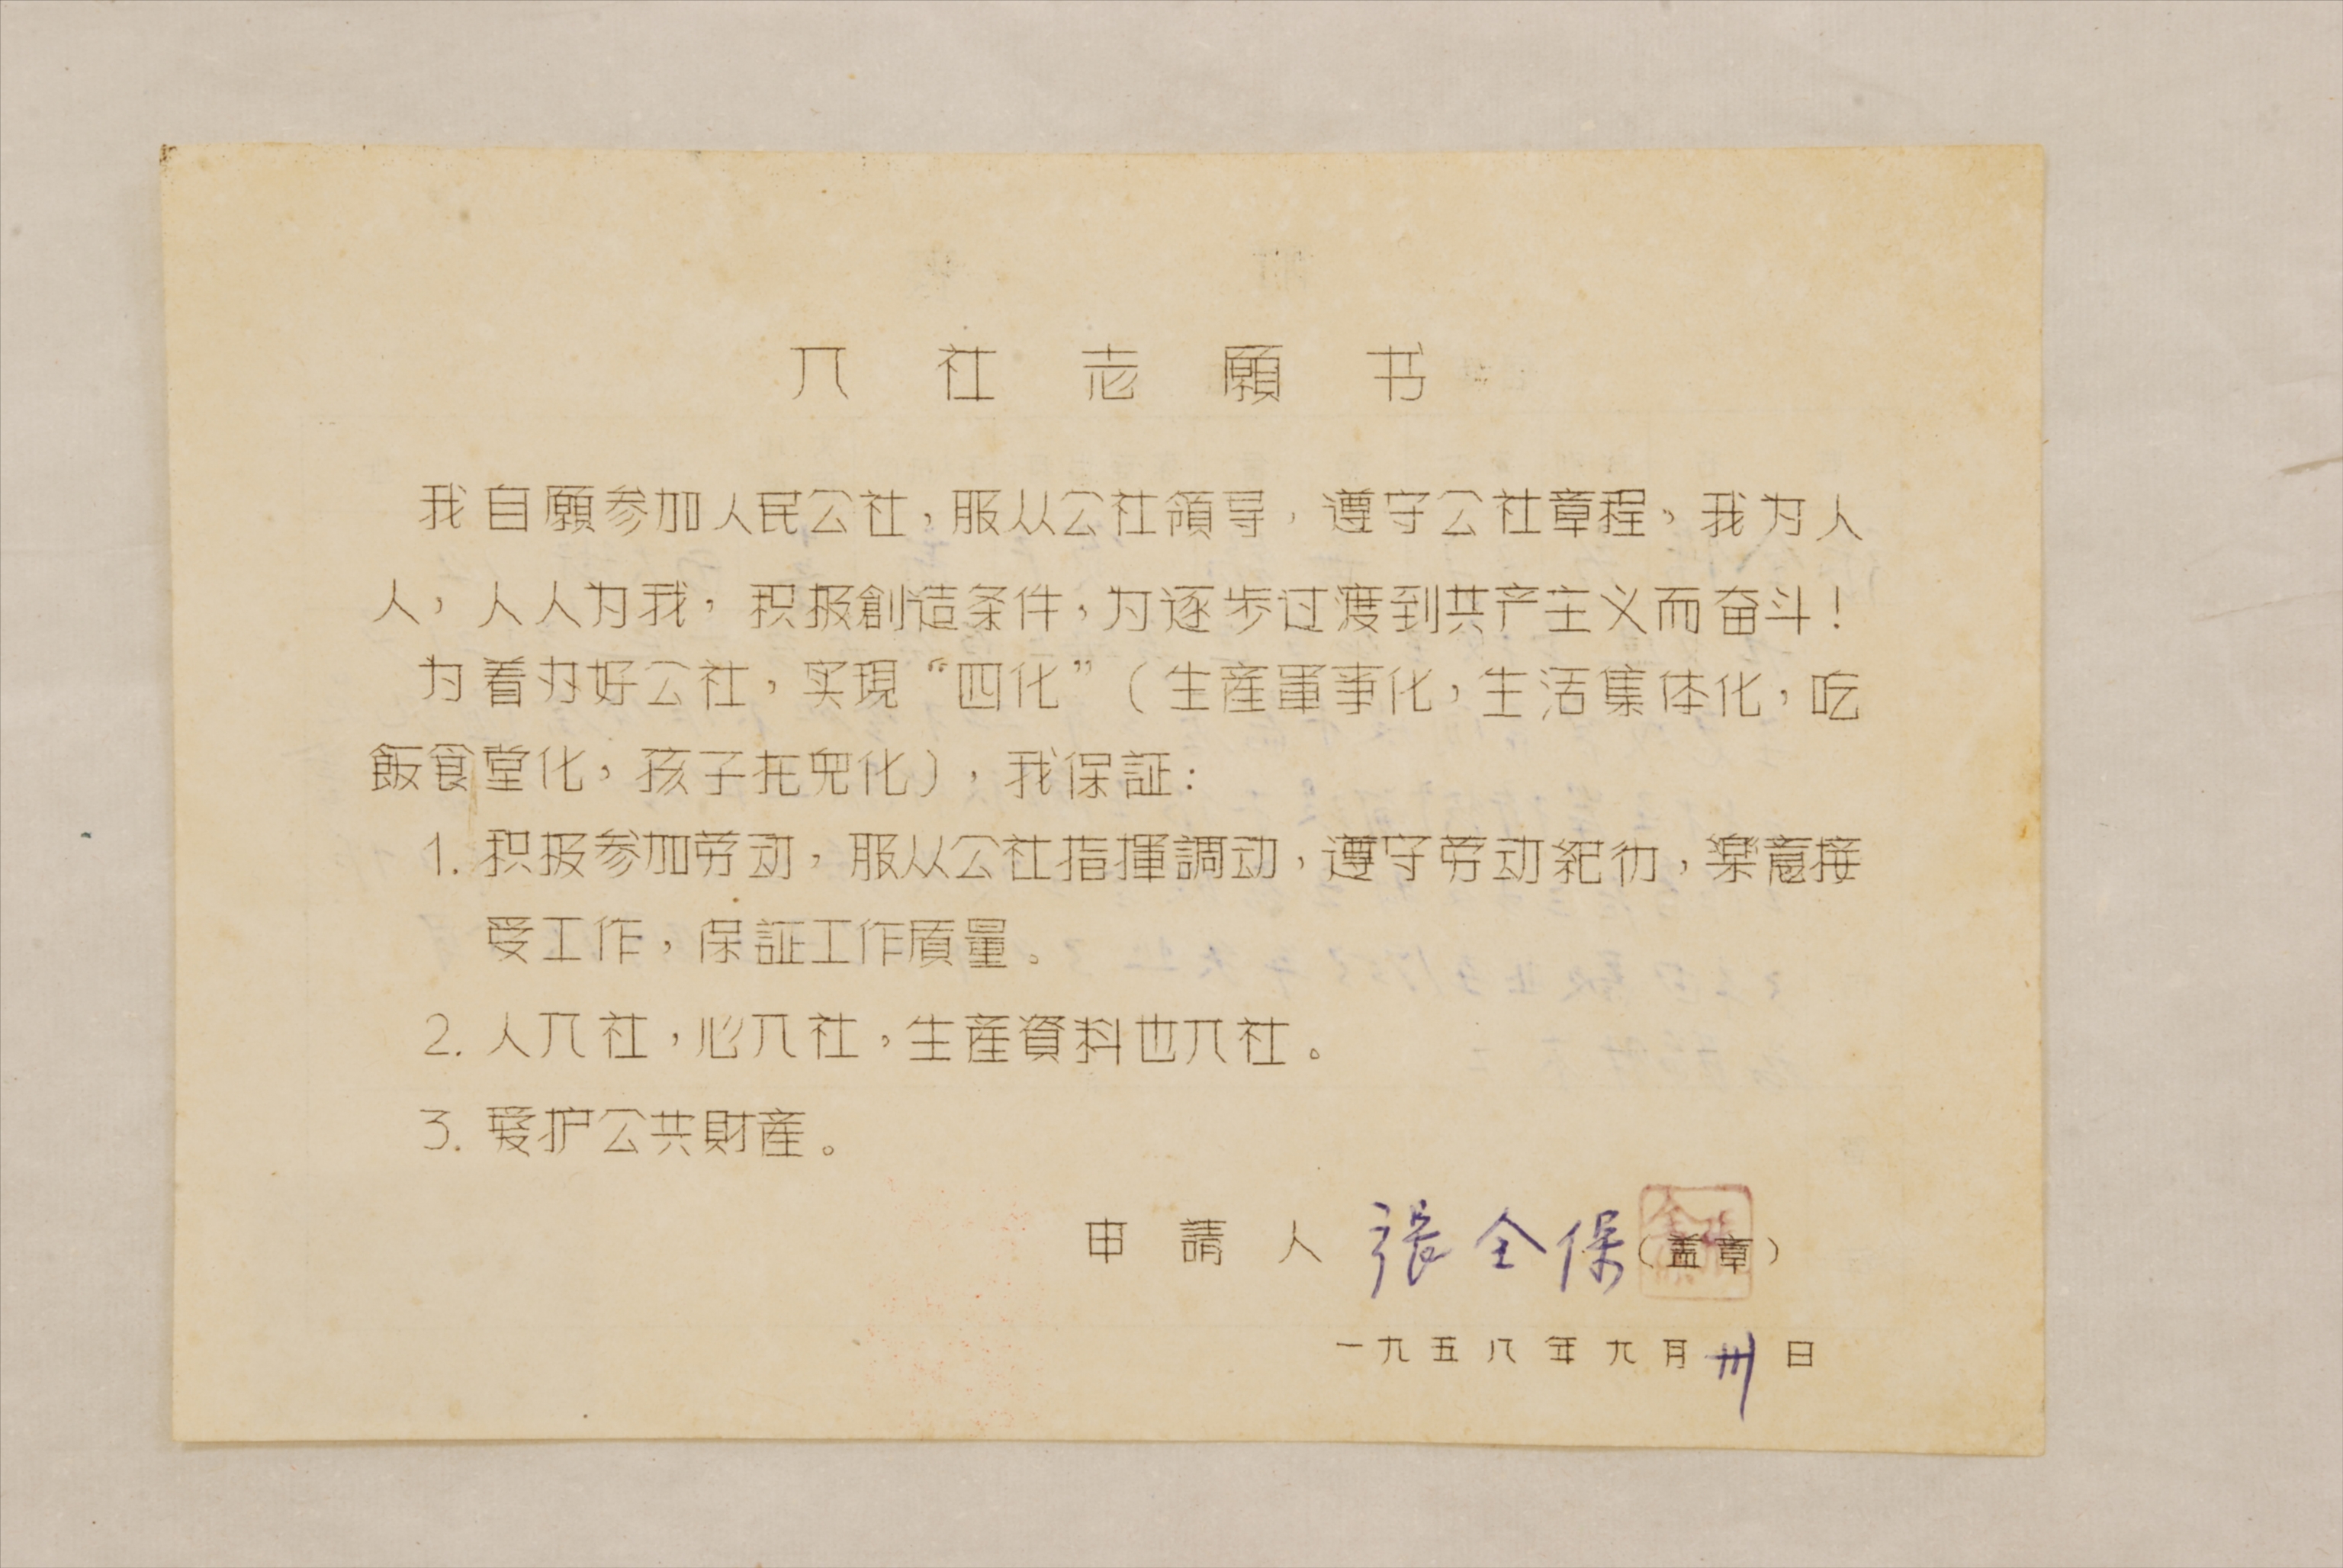 入社志願书
我自願参加人民公社，服从公社領导，遵守公社章程，我为人
人，人人为我，积极創造条件，为逐步过渡到共产主义而奋斗！
为着办好公社，实現“四化”（生産軍事化，生活集体化，吃
飯食堂化，孩子托児化），我保証：
1. 积极参加劳动，服从公社指揮調动，遵守劳动紀彻，樂意接
受工作，保証工作质量。
2. 人入社，心入社，生産資料也入社。
3. 爱护公共財産。
申請人 張全保（盖章）
一九五八年九月卅日